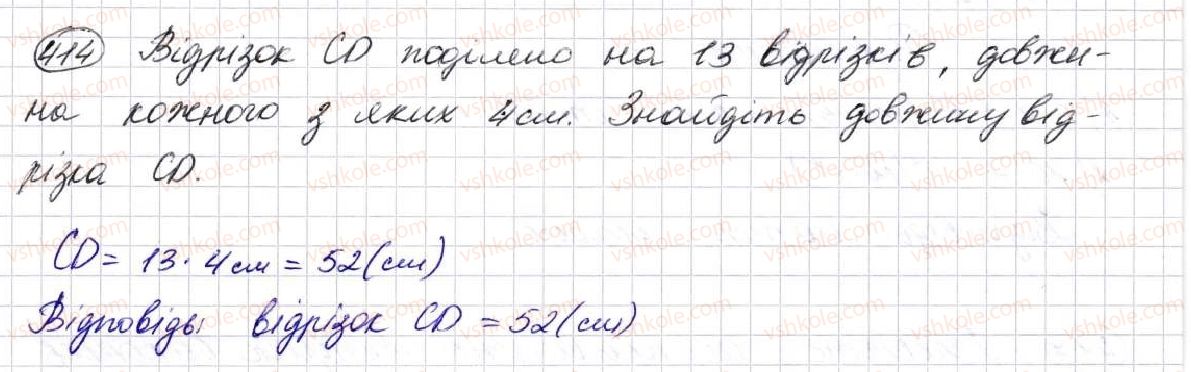 414 Відрізок CD поділено на 13 відрізків, довжи-
на кожного з яких 4 см. Знайдіть довжину від-
різка CD.
CD = 13 · 4 см = 52 (см)
Відповідь: відрізок CD = 52 (см)